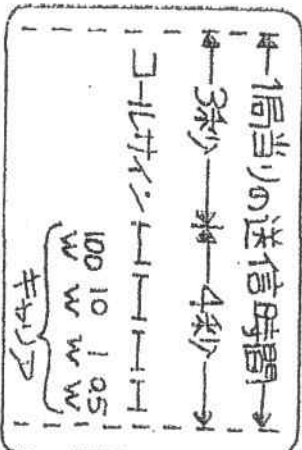 1局当りの送信時間
3秒 4秒
コールサイン
100W 10W 1W 0.5W
キャリア